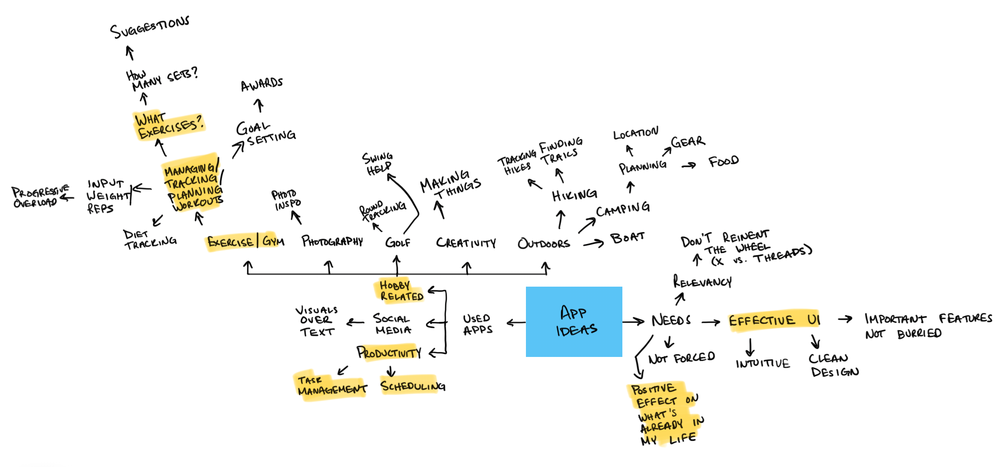 SUGGESTIONS
HOW
MANY SETS?
WHAT
EXERCISES?
AWARDS
GOAL
SETTING
MANAGING/
TRACKING/
PLANNING/
WORKOUTS
INPUT
WEIGHT/
REPS
PROGRESSIVE
OVERLOAD
DIET
TRACKING
EXERCISE/GYM
PHOTO
INSPO
PHOTOGRAPHY
SWING
HELP
ROUND
TRACKING
GOLF
MAKING
THINGS
CREATIVITY
TRACKING
HIKES
FINDING
TRAILS
HIKING
OUTDOORS
LOCATION
PLANNING
GEAR
FOOD
CAMPING
BOAT
HOBBY
RELATED
VISUALS
OVER
TEXT
SOCIAL
MEDIA
USED
APPS
PRODUCTIVITY
TASK
MANAGEMENT
SCHEDULING
APP
IDEAS
DON'T REINENT
THE WHEEL
(X VS. THREADS)
RELEVANCY
NEEDS
EFFECTIVE UI
IMPORTANT FEATURES
NOT BURRIED
NOT FORCED
INTUITIVE
CLEAN
DESIGN
POSITIVE
EFFECT ON
WHAT'S
ALREADY IN
MY LIFE